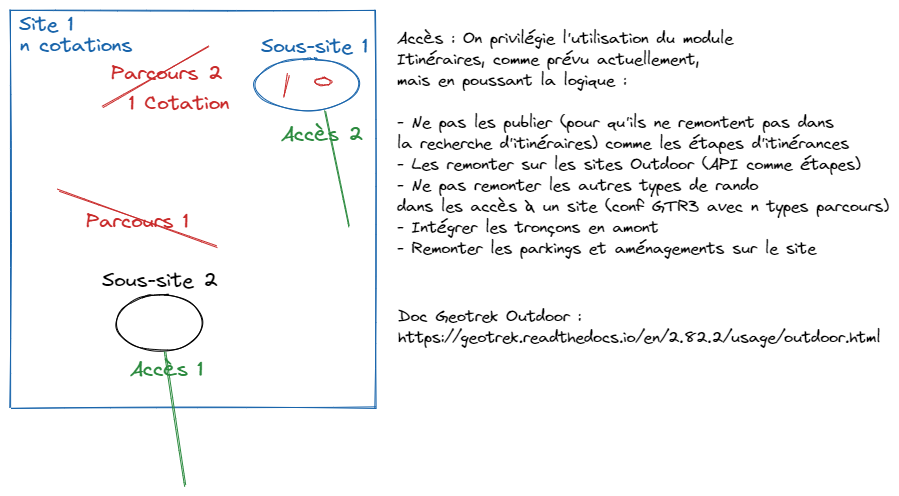 Site 1
n cotations
Sous-site 1
Parcours 2
1 Cotation
Accès 2
Parcours 1
Sous-site 2
Accès 1
Accès : On privilégie l'utilisation du module
Itinéraires, comme prévu actuellement,
mais en poussant la logique :
- Ne pas les publier (pour qu'ils ne remontent pas dans
la recherche d'itinéraires) comme les étapes d'itinérances
- Les remonter sur les sites Outdoor (API comme étapes)
- Ne pas remonter les autres types de rando
dans les accès à un site (conf GTR3 avec n types parcours)
- Intégrer les tronçons en amont
- Remonter les parkings et aménagements sur le site
Doc Geotrek Outdoor :
https://geotrek.readthedocs.io/en/2.82.2/usage/outdoor.html